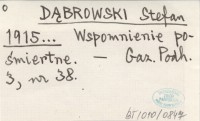 DĄBROWSKI Stefan
1915... Wspomnienie po-
śmiertne. — Gaz. Podh.
3, nr 38.